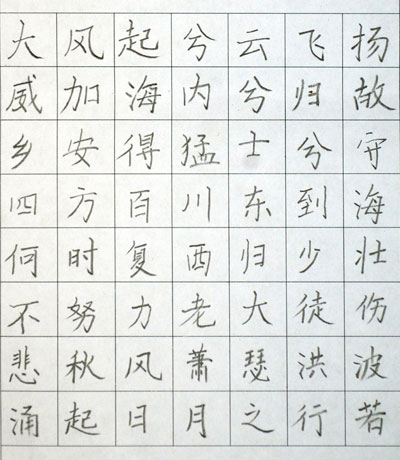 大风起兮云飞扬
威加海内兮归故
乡安得猛士兮守
四方百川东到海
何时复西归少壮
不努力老大徒伤
悲秋风萧瑟洪波
涌起日月之行若